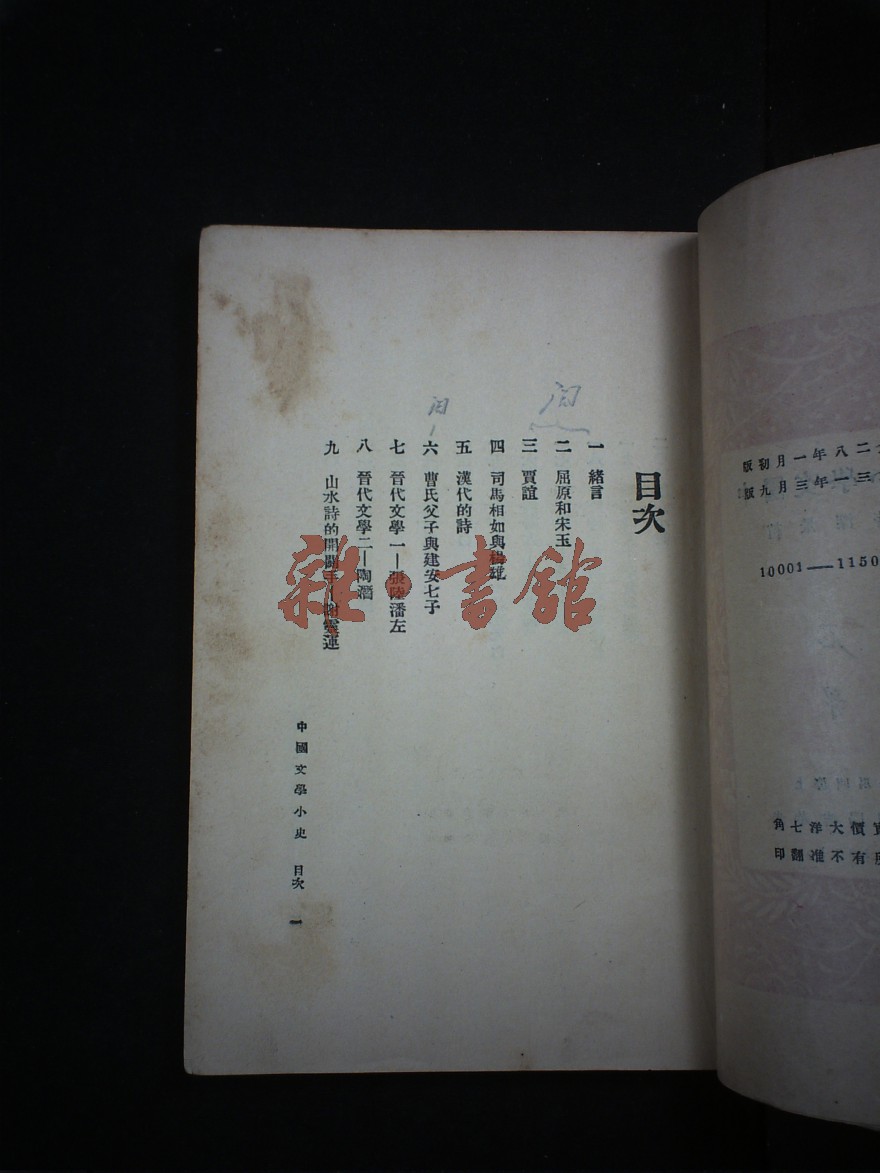 目次
一 緒言
二 屈原和宋玉
三 賈誼
四 司馬相如與楊雄
五 漢代的詩
六 曹氏父子與建安七子
七 晉代文學一—張陸潘左
八 晉代文學二—陶潛
九 山水詩的開闢手—謝靈運
中國文學小史 目次 一
二八年一月初版
三一年三月九版
10001——1150
價大洋七角
有不准翻印
雜·書館